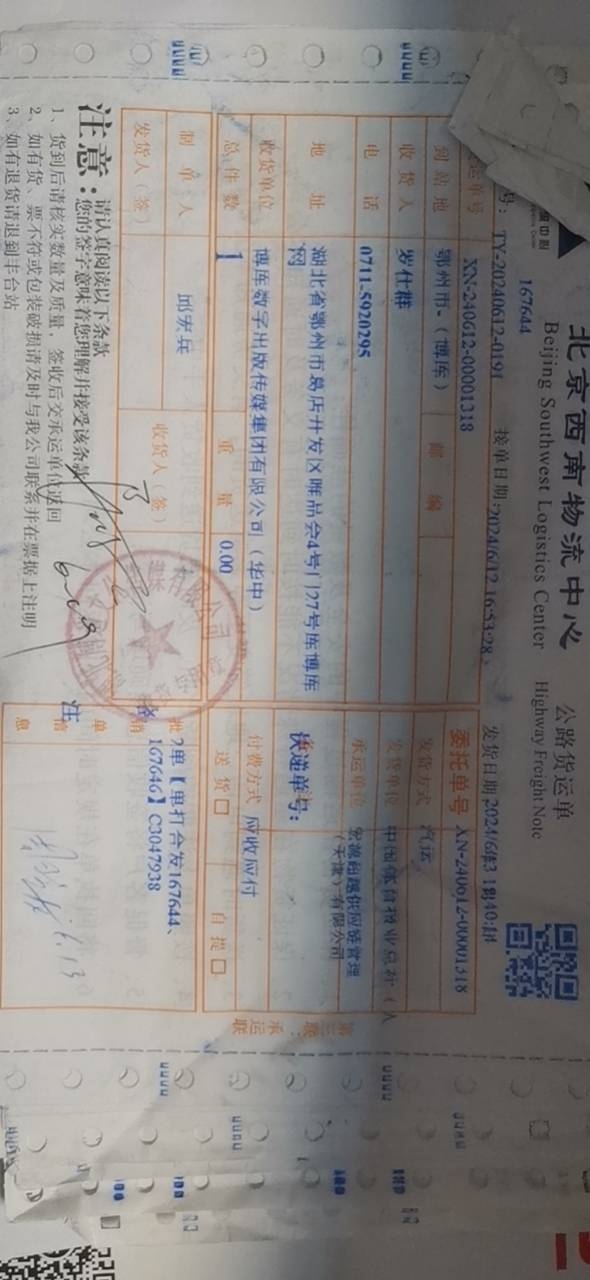 北京西南物流中心
公路货运单
Beijing Southwest Logistics Center
Highway Freight Note
167644
号：TY-20240612-0191
接单日期:2024/6/12 16:53:28
发货日期:2024/6/13
运单号 XN-240612-00001318
委托单号 XN-240612-00001318
到站地 鄂州市-（博库）
邮编
发货方式 汽运
收货人 罗仕群
发货单位 中国体育报业总社（人
电话 0711-5920295
承运单位 宏源超越供应链管理
（天津）有限公司
地址 湖北省鄂州市葛店开发区唯品会4号门27号库博库
网
快递单号：
收货单位 博库数字出版传媒集团有限公司（华中）
付费方式 应收应付
总件数 1
重量 0.00
送货□
自提□
制单人 邱宏兵
收货人（签）
发货人（签）
批单【单打合发167644、
167646】C3047938
注
单
信
息
第三联：承运联
注意：
请认真阅读以下条款
您的签字意味着您理解并接受该条款
1、货到后请核实数量及质量，签收后交承运单位返回
2、如有货、票不符或包装破损请及时与我公司联系并在票据上注明
3、如有退货请退到丰台站
6.13